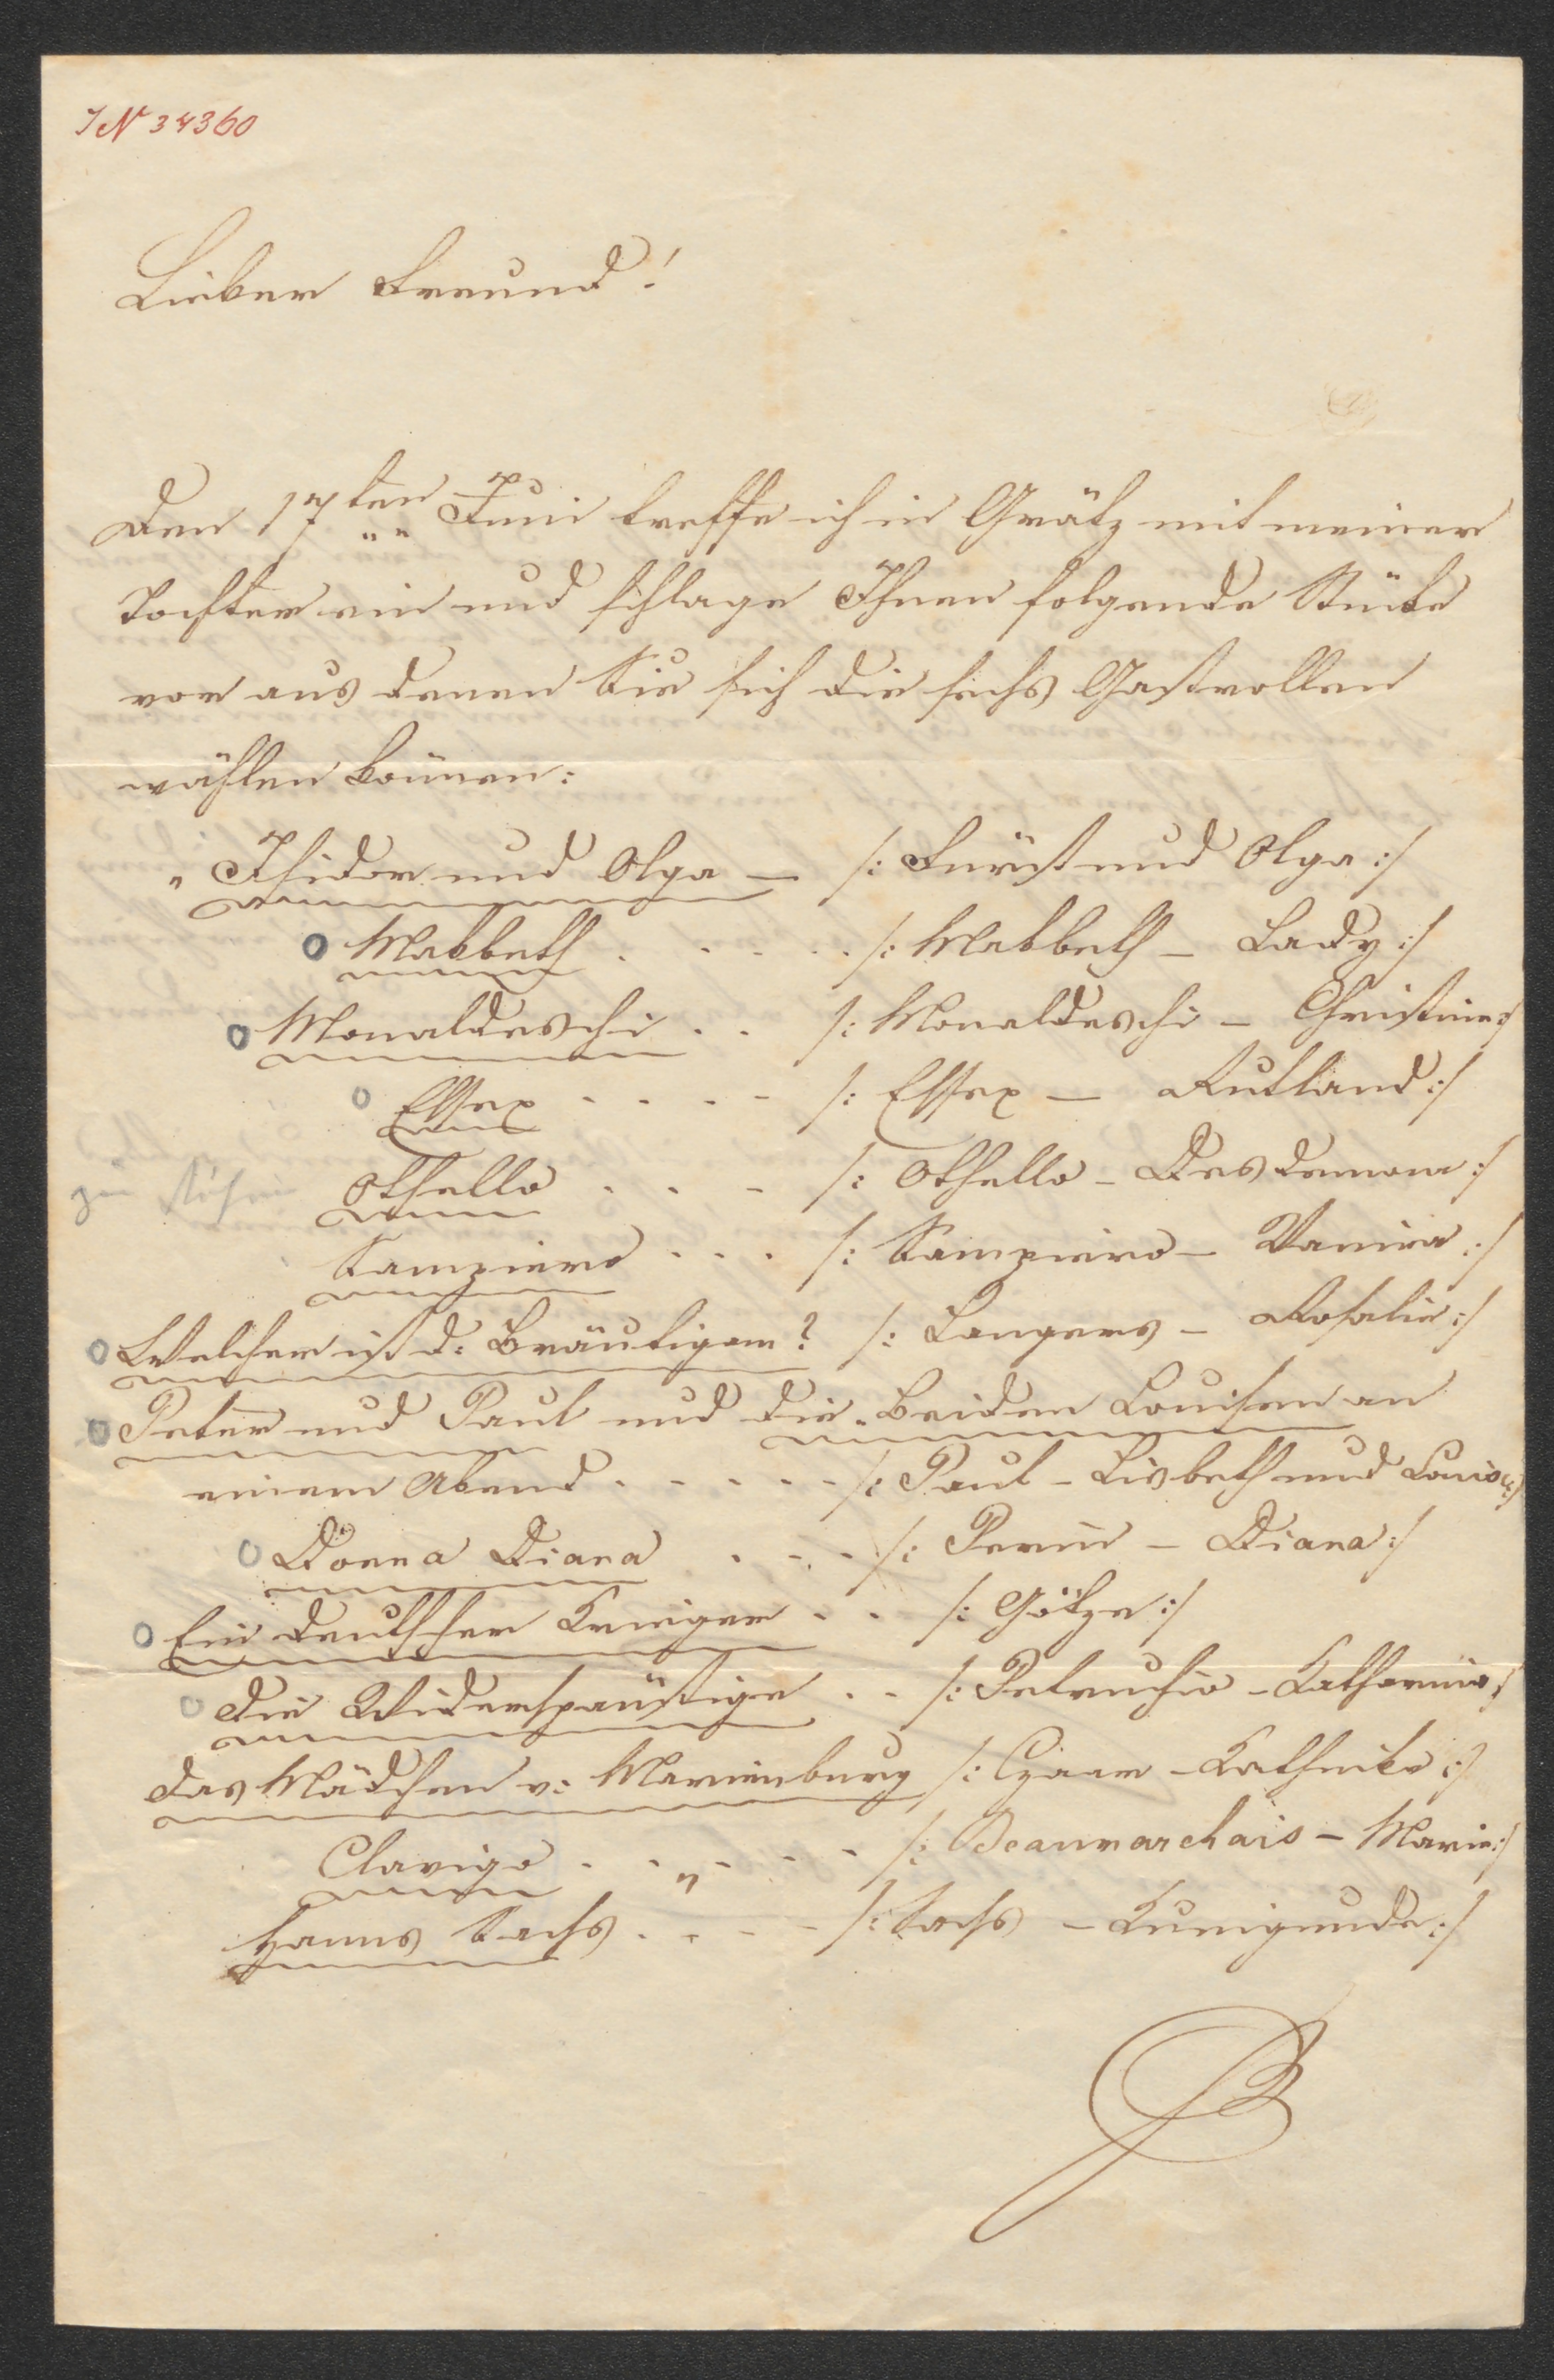 IN 34360
Lieber Freund!
Den 17ten Juni treffe ich in Grätz mit meiner
Tochter ein und schlage Ihnen folgende Stücke
vor aus denen Sie sich die sechs Gastrollen
wählen können:
„Isidor und Olga — /: Fürst und Olga :/
Makbeth . . . . . /: Makbeth – Lady :/
Monaldeschi . . /: Monaldeschi – Christine :/
Essex . . . . . /: Essex – Rutland :/
Othello . . . /: Othello – Desdemona :/
Sampiero . . . /: Sampiero – Vanina :/
Welcher ist d: Bräutigam? /: Langers – Rosalie :/
Peter und Paul und die beiden Louisen an
einem Abend . . . . . . /: Paul – Lisbeth und Louise :/
Donna Diana . . . /: Perin – Diana :/
Ein deutscher Krieger . . /: Götze :/
Die Widerspänstige . . /: Petruchio – Katharine :/
Das Mädchen v: Marienburg /: Czaar – Kathinka :/
Clavigo . . „ . . . /: Beaumarchais – Marie :/
Hanns Sachs . . . . /: Sachs – Kunigunde :/